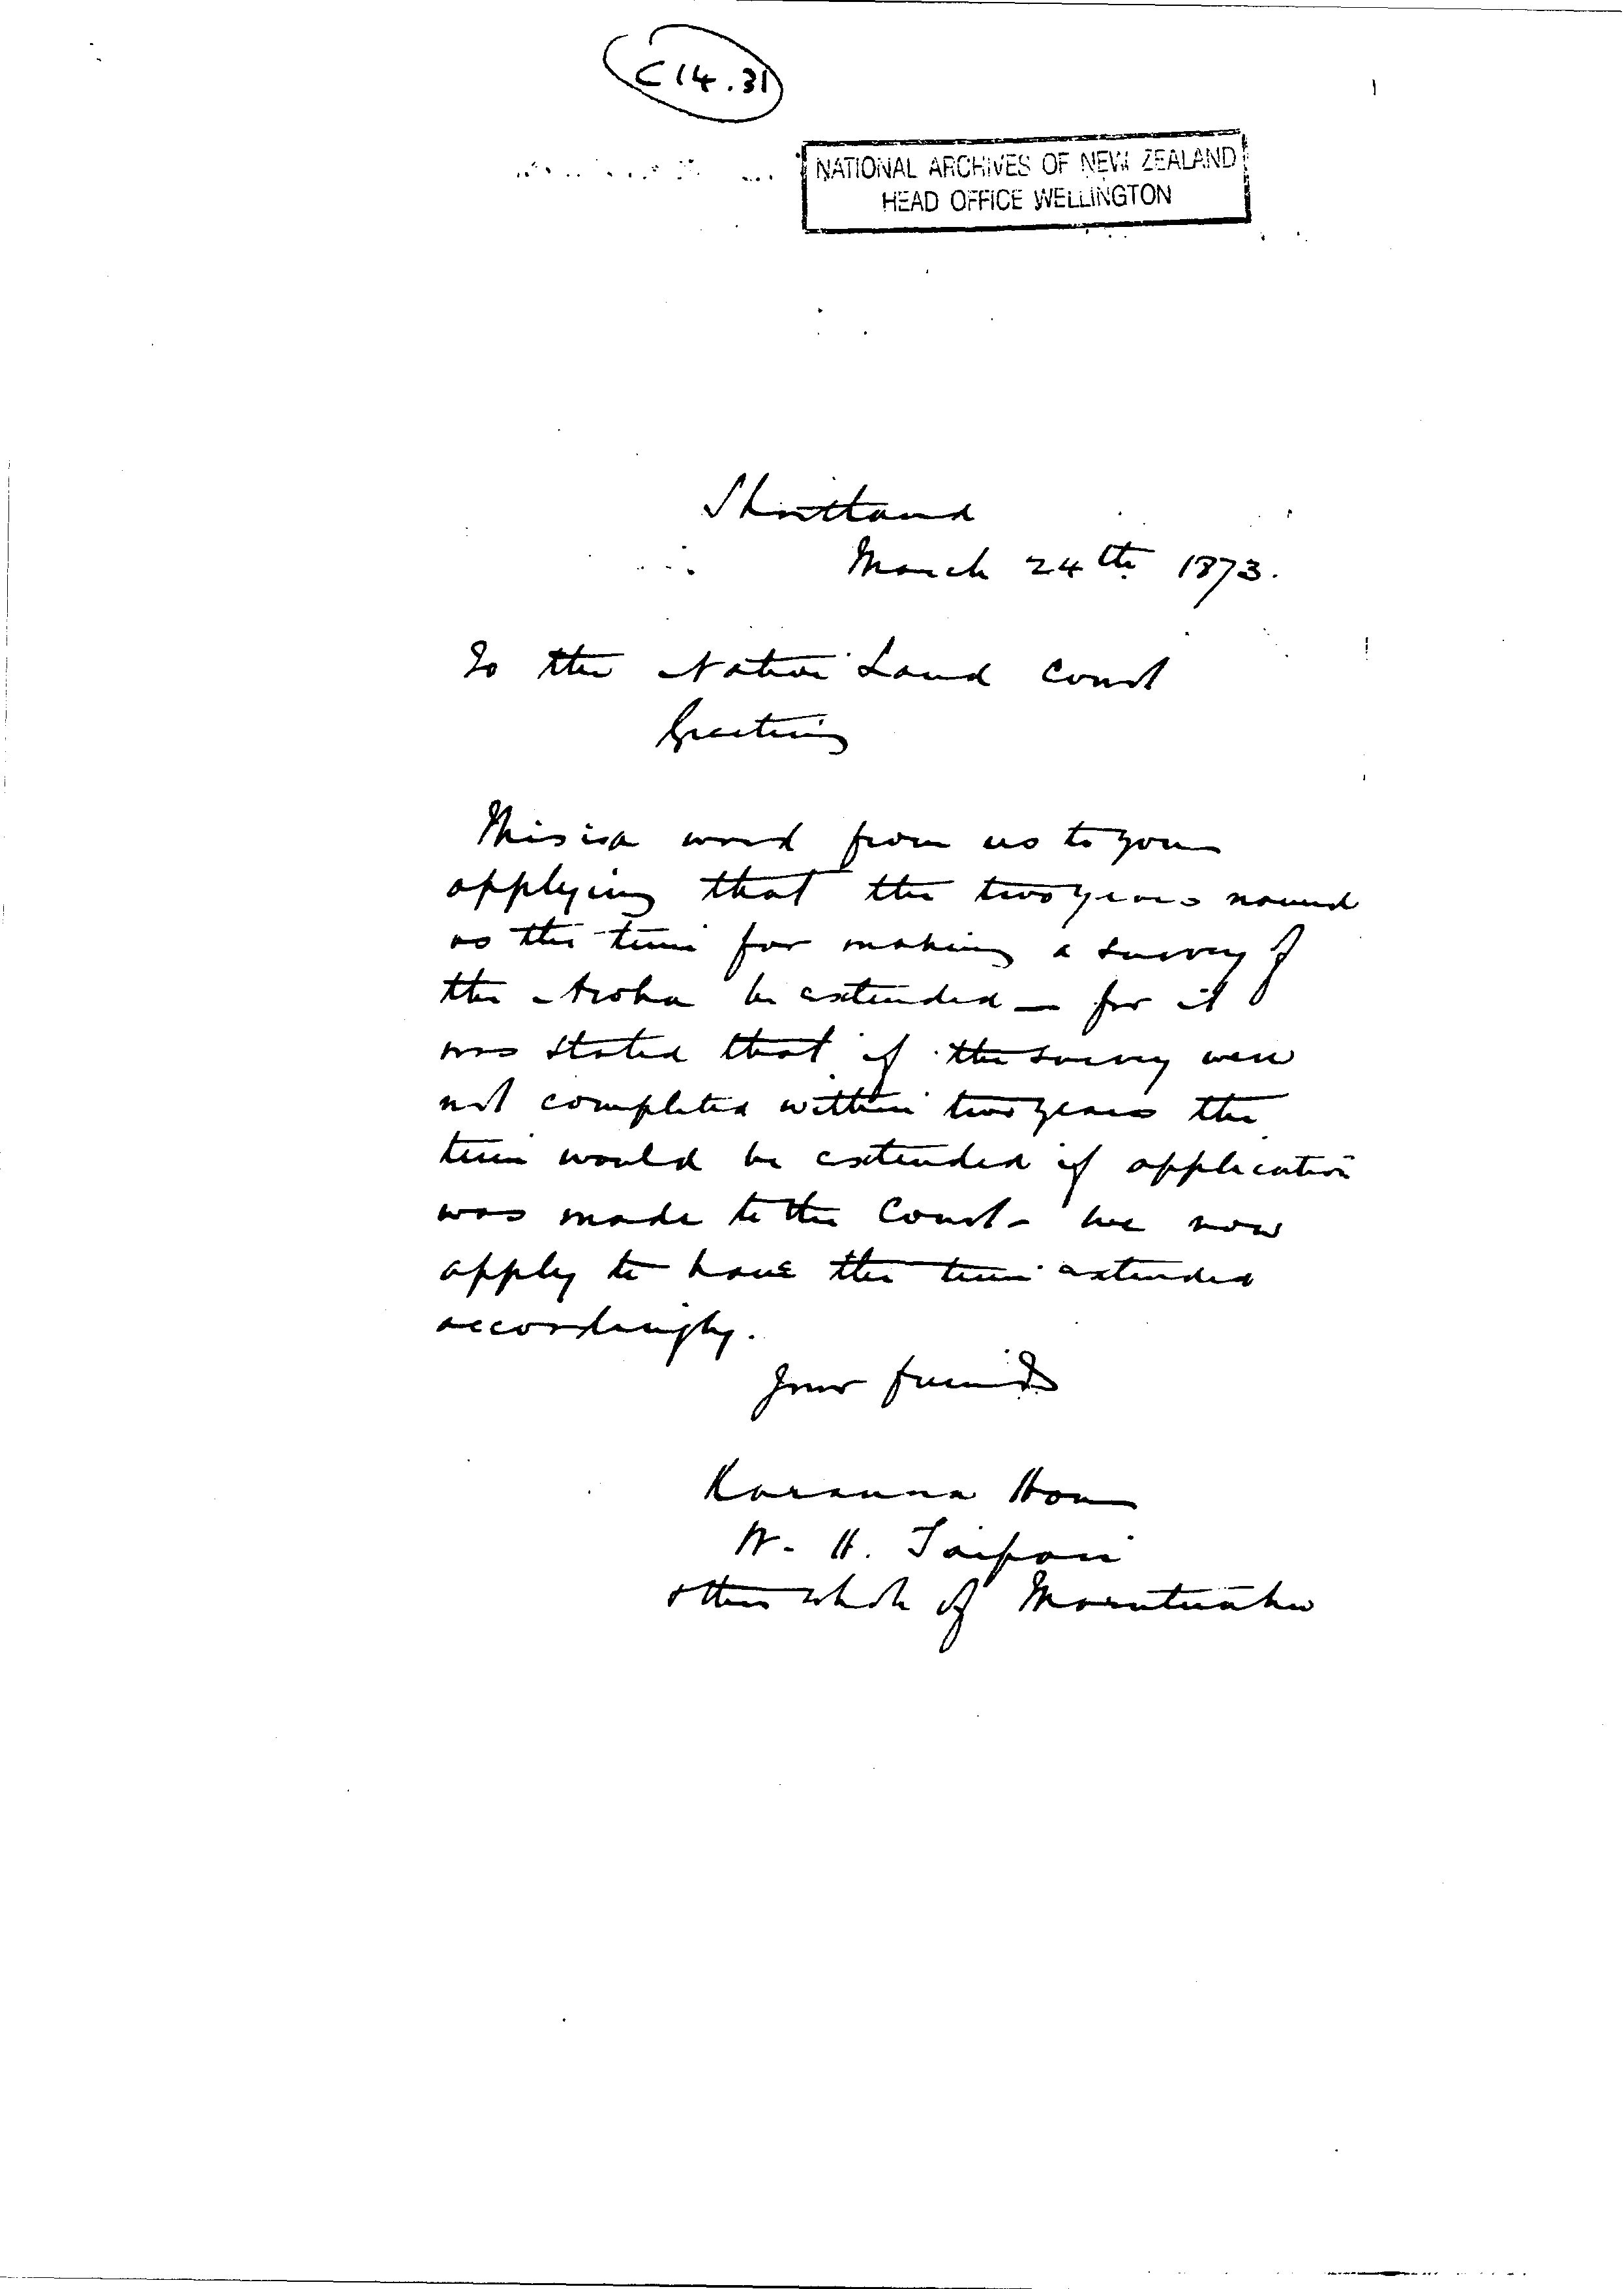 C14.31
NATIONAL ARCHIVES OF NEW ZEALAND
HEAD OFFICE WELLINGTON
Shortland
March 24th 1873.
To the Native Land Court
Greeting
This is a word from us to you
applying that the two years named
as the time for making a survey of
the Aroha be extended — for it
was stated that if the survey were
not completed within two years the
time would be extended if application
was made to the Court - We now
apply to have the time extended
accordingly.
Your friends
Karauna Hou
W. H. Taipari
& the whole of Marutuahu